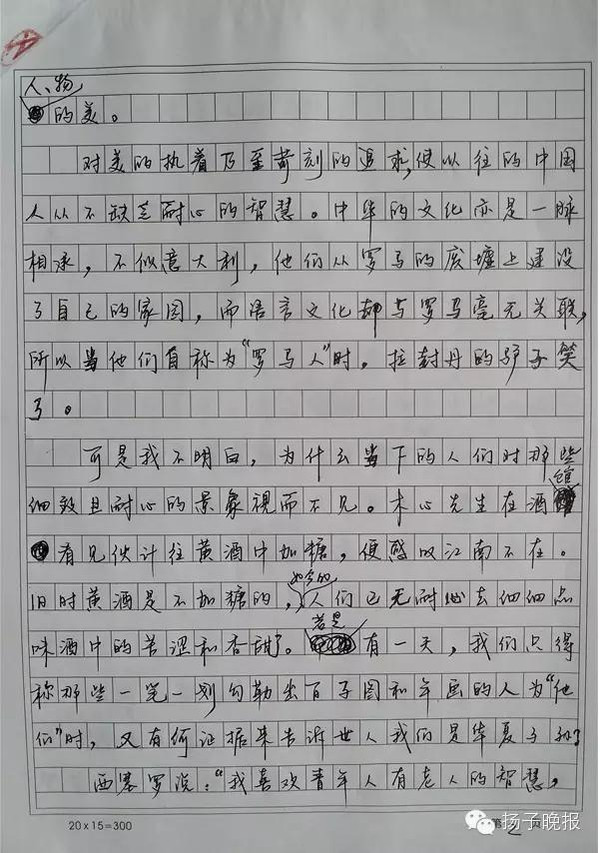 人、物
的美。
对美的执着乃至苛刻的追求,使以往的中国
人从不缺乏耐心的智慧。中华的文化亦是一脉
相承，不似意大利，他们从罗马的废墟上建设
了自己的家园，而语言文化却与罗马毫无关联,
所以当他们自称为“罗马人”时，拉封丹的驴子笑
了。
可是我不明白，为什么当下的人们对那些
细致且耐心的景象視而不见。木心先生在酒馆
看见伙计往黄酒中加糖，便感叹江南不在。
如今的
旧时黄酒是不加糖的，人们已无耐心去细细品
若是
味酒中的苦涩和香甜了。有一天，我们只得
称那些一笔一划勾勒出百子图和年画的人为“他
们”时，又有何证据来告诉世人我们是华夏子孙?
西塞罗说：“我喜欢青年人有老人的智慧，
20×15=300
第2页
扬子晚报